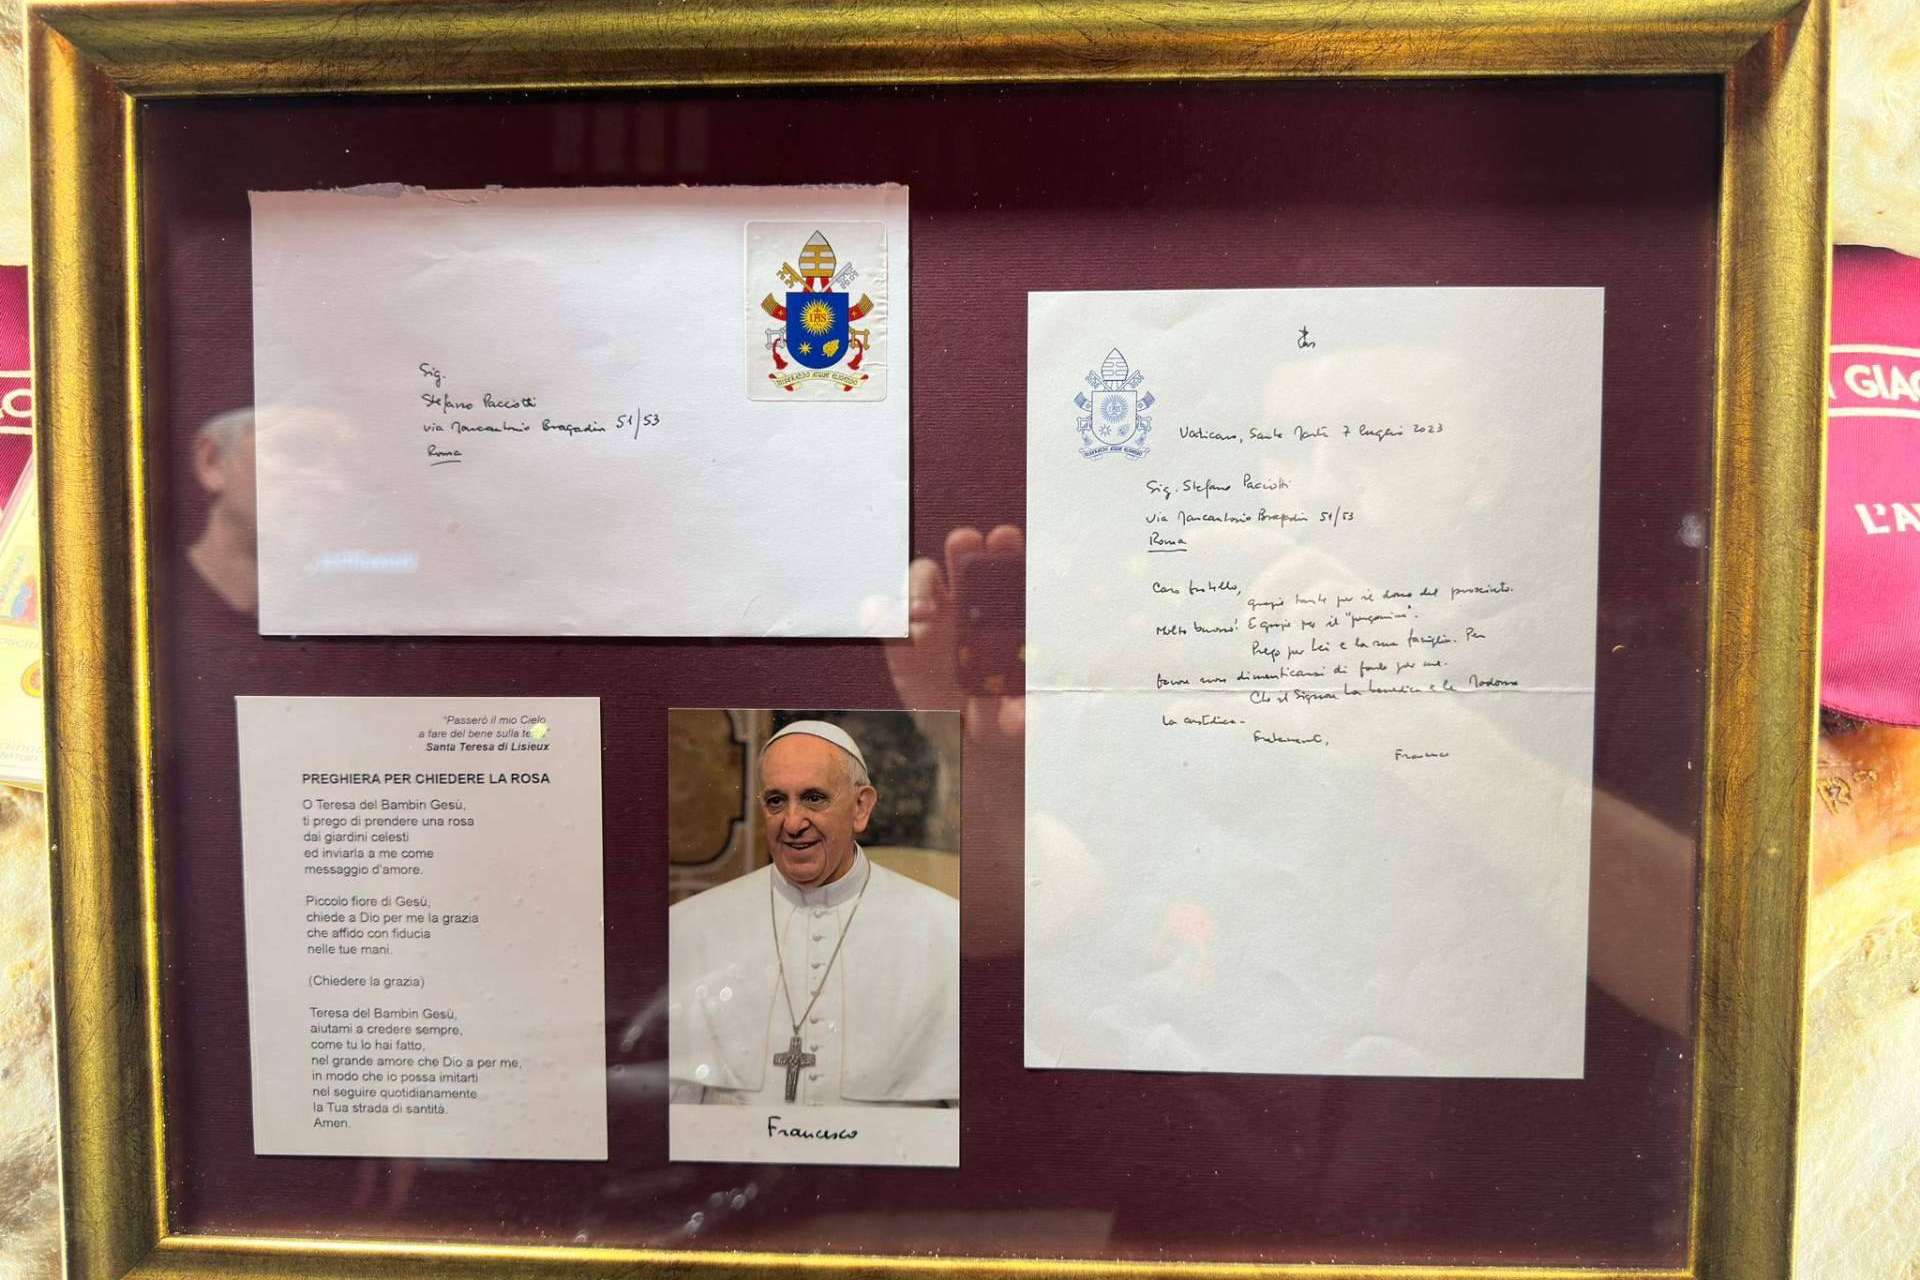 Sig.
Stefano Pacciotti
via Marcantonio Bragadin 51/53
Roma
MISERANDO ATQUE ELIGENDO
"Passerò il mio Cielo
a fare del bene sulla
Santa Teresa di Lisieux
PREGHIERA PER CHIEDERE LA ROSA
O Teresa del Bambin Gesù,
ti prego di prendere una rosa
dai giardini celesti
ed inviarla a me come
messaggio d'amore.
Piccolo fiore di Gesù,
chiede a Dio per me la grazia
che affido con fiducia
nelle tue mani.
(Chiedere la grazia)
Teresa del Bambin Gesù,
aiutami a credere sempre,
come tu lo hai fatto,
nel grande amore che Dio a per me,
in modo che io possa imitarti
nel seguire quotidianamente
la Tua strada di santità.
Amen.
Francesco
Vaticano, Santa Marta 7 luglio 2023
Sig. Stefano Pacciotti
via Marcantonio Bragadin 51/53
Roma
Caro fratello,
grazie tante per il dono del prosciutto.
Molto buono! E grazie per il
Prego per Lei e la sua famiglia. Per
favore non dimenticarsi di farlo per me.
Che il Signore La benedica e la Madonna
La custodisca.
Fraternamente,
Francesco
GIAC
L'A